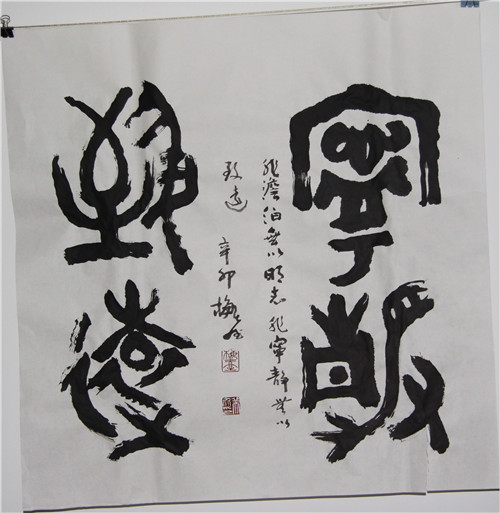 寧靜
非澹泊無以明志非寧靜無以
致遠 辛卯 梅
致遠